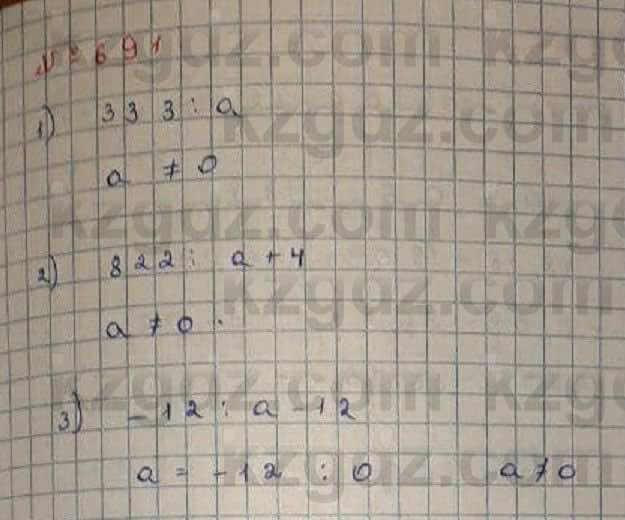 № 691
1) 333 : a
a ≠ 0
2) 822 : a + 4
a ≠ 0.
3) -12 : a - 12
a = -12 : 0 a ≠ 0
kzgdz.com kzgdz.com
kzgdz.com
kzgdz.com kzgdz.com
kzgdz.com
kzgdz.com kzgdz.com
kzgdz.com